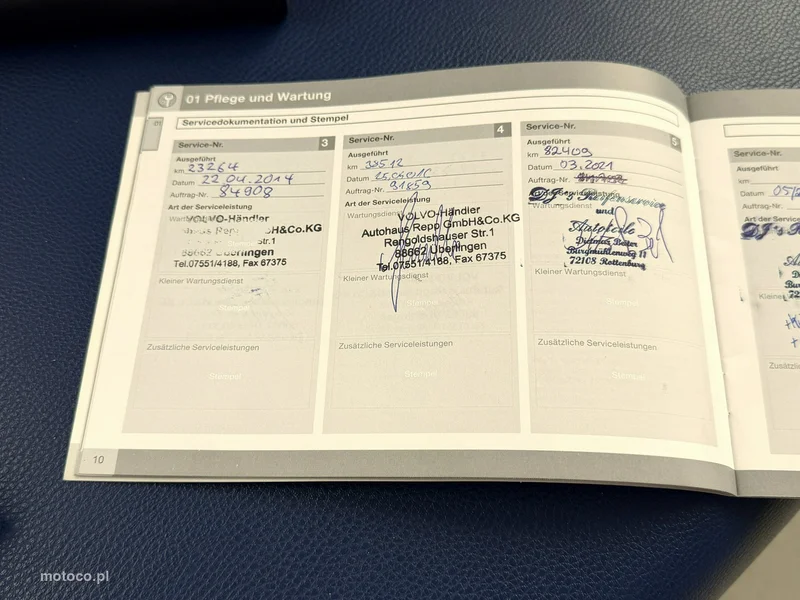 01 Pflege und Wartung
01
Servicedokumentation und Stempel
Service-Nr. 3
Ausgeführt
km 23264
Datum 22.04.2014
Auftrag-Nr. 84908
Art der Serviceleistung
VOLVO-Händler
H&Co.KG
str.1
88662 Überlingen
Tel.07551/4188, Fax 67375
Kleiner Wartungsdienst
Zusätzliche Serviceleistungen
Stempel
Service-Nr. 4
Ausgeführt
km
Datum
Auftrag-Nr. 91859
Art der Serviceleistung
Wartungsdienst
VOLVO-Händler
Autohaus Repp GmbH&Co.KG
Rengoldshauser Str.1
88662 Überlingen
Tel.07551/4188, Fax 67375
Kleiner Wartungsdienst
Stempel
Zusätzliche Serviceleistungen
Stempel
Service-Nr. 5
Ausgeführt
km 82409
Datum 03.2021
Auftrag-Nr.
DJ's Reifenservice
und
Dietmar
72108 Rottenburg
Kleiner Wartungsdienst
Stempel
Zusätzliche Serviceleistungen
Stempel
Service-Nr.
Ausgeführt
km
Datum 05/
Auftrag-Nr.
Art der Servic
DJ's
Kleine
72
Zusätzl
10
motoco.pl